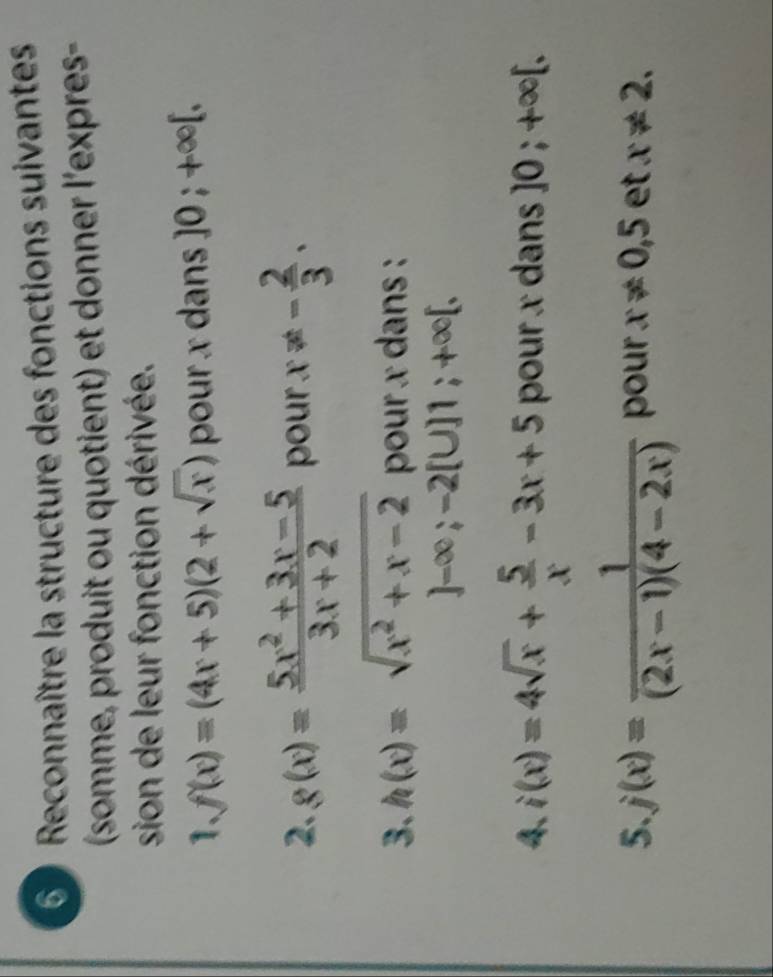 6 Reconnaître la structure des fonctions suivantes
(somme, produit ou quotient) et donner l'expres-
sion de leur fonction dérivée.
1. f(x) = (4x + 5)(2 + √x) pour x dans ]0 ; +∞[.
2. g(x) = (5x² + 3x − 5)/(3x + 2) pour x ≠ −2/3.
3. h(x) = √(x² + x − 2) pour x dans :
]−∞ ; −2[∪]1 ; +∞[.
4. i(x) = 4√x + 5/x − 3x + 5 pour x dans ]0 ; +∞[.
5. j(x) = 1/((2x − 1)(4 − 2x)) pour x ≠ 0,5 et x ≠ 2.